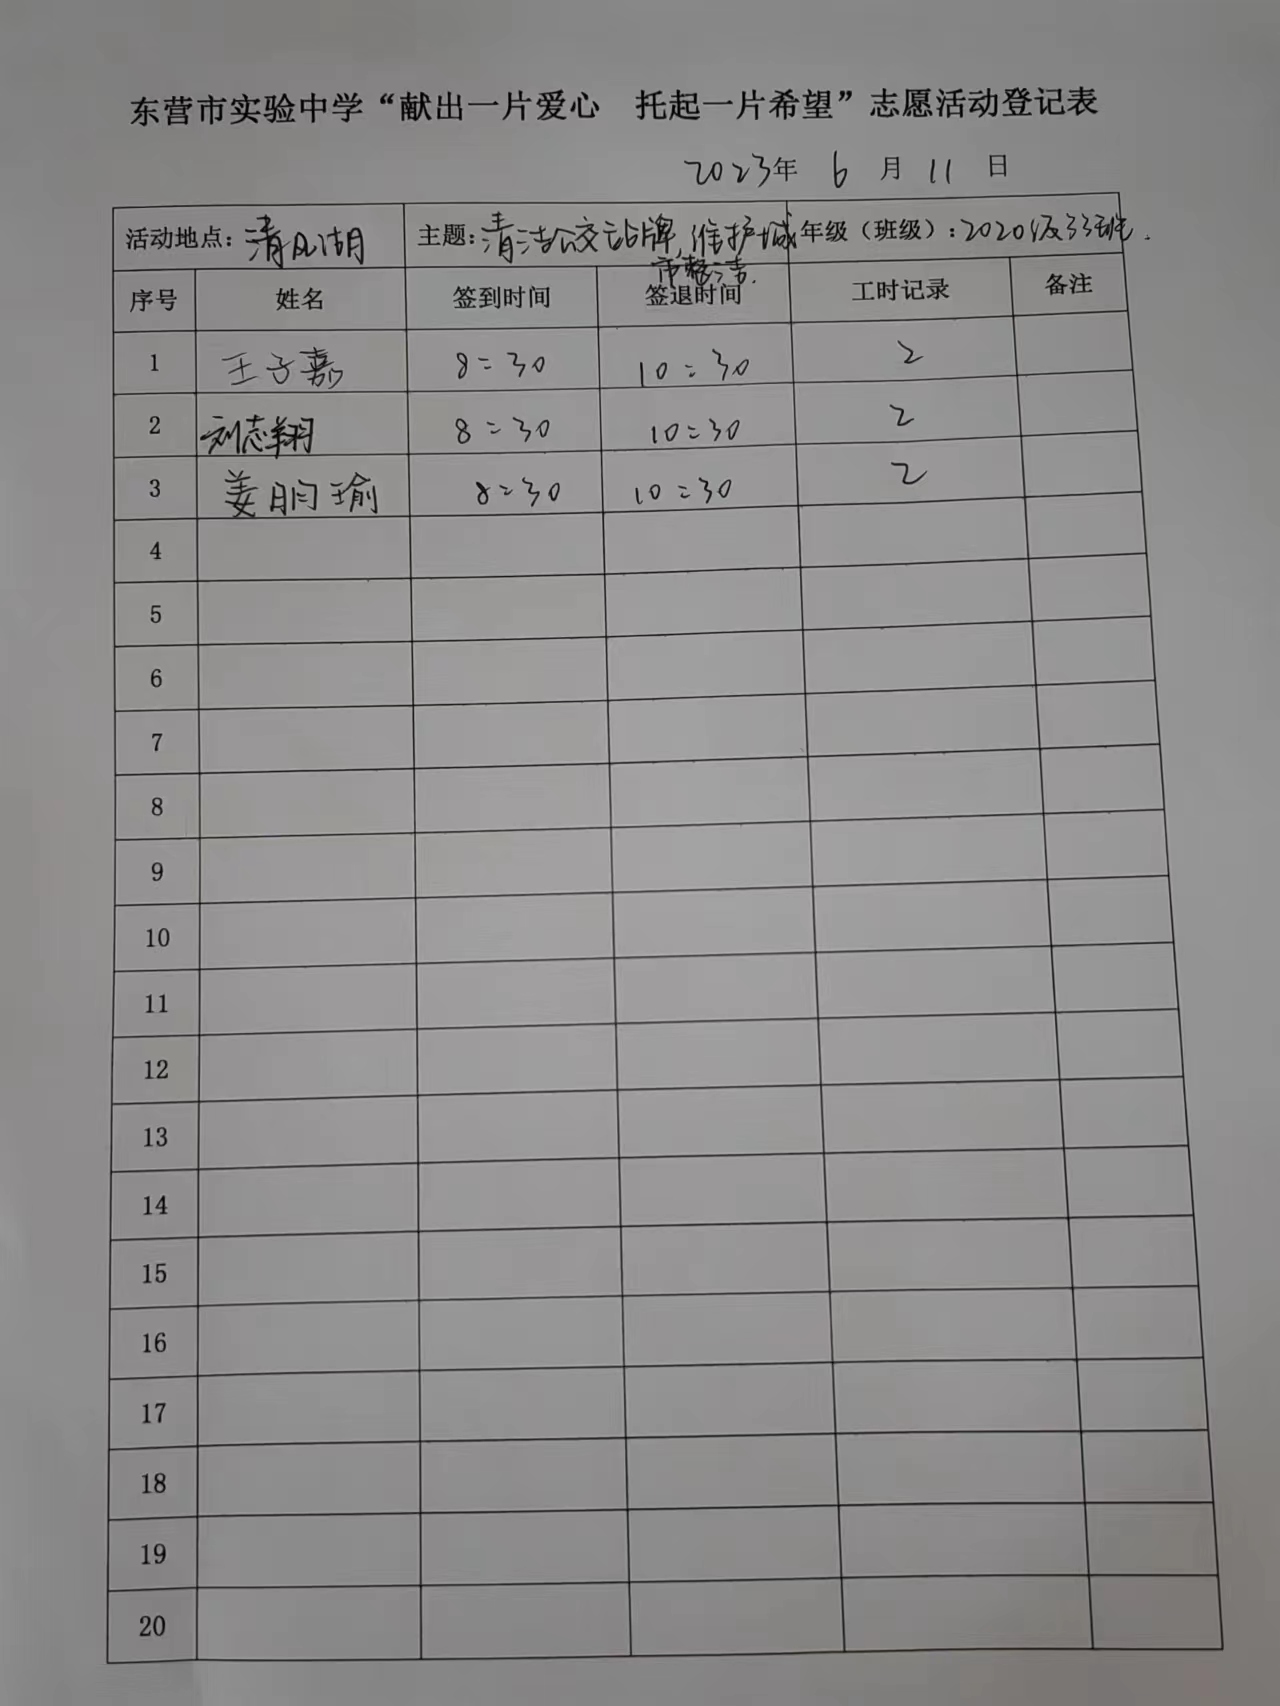 东营市实验中学“献出一片爱心 托起一片希望”志愿活动登记表
2023年 6 月 11 日
活动地点：清风湖 主题：清洁公交站牌，维护城市整洁. 年级（班级）：2020级33班.
序号 姓名 签到时间 签退时间 工时记录 备注
1 王子嘉 8:30 10:30 2
2 刘志翔 8:30 10:30 2
3 姜玥瑜 8:30 10:30 2
4
5
6
7
8
9
10
11
12
13
14
15
16
17
18
19
20